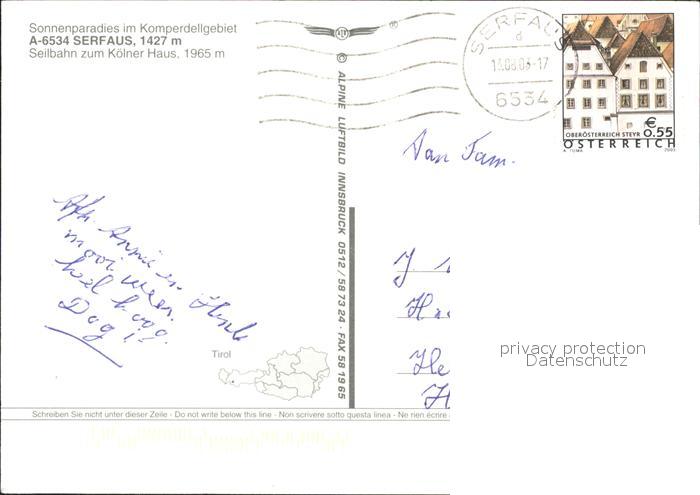 Sonnenparadies im Komperdellgebiet
A-6534 SERFAUS, 1427 m
Seilbahn zum Kölner Haus, 1965 m
SERFAUS
d
13.08.03-17
6534
OBERÖSTERREICH STEYR
€ 0.55
ÖSTERREICH
© ALPINE LUFTBILD INNSBRUCK 0512 / 58 73 24 · FAX 58 19 65
Aan Fam.
J.
Afz. Annie en Henk
mooi weer.
heel hoog.
Dag!!
He
H
privacy protection
Datenschutz
Tirol
Schreiben Sie nicht unter dieser Zeile - Do not write below this line - Non scrivere sotto questa linea - Ne rien écrire